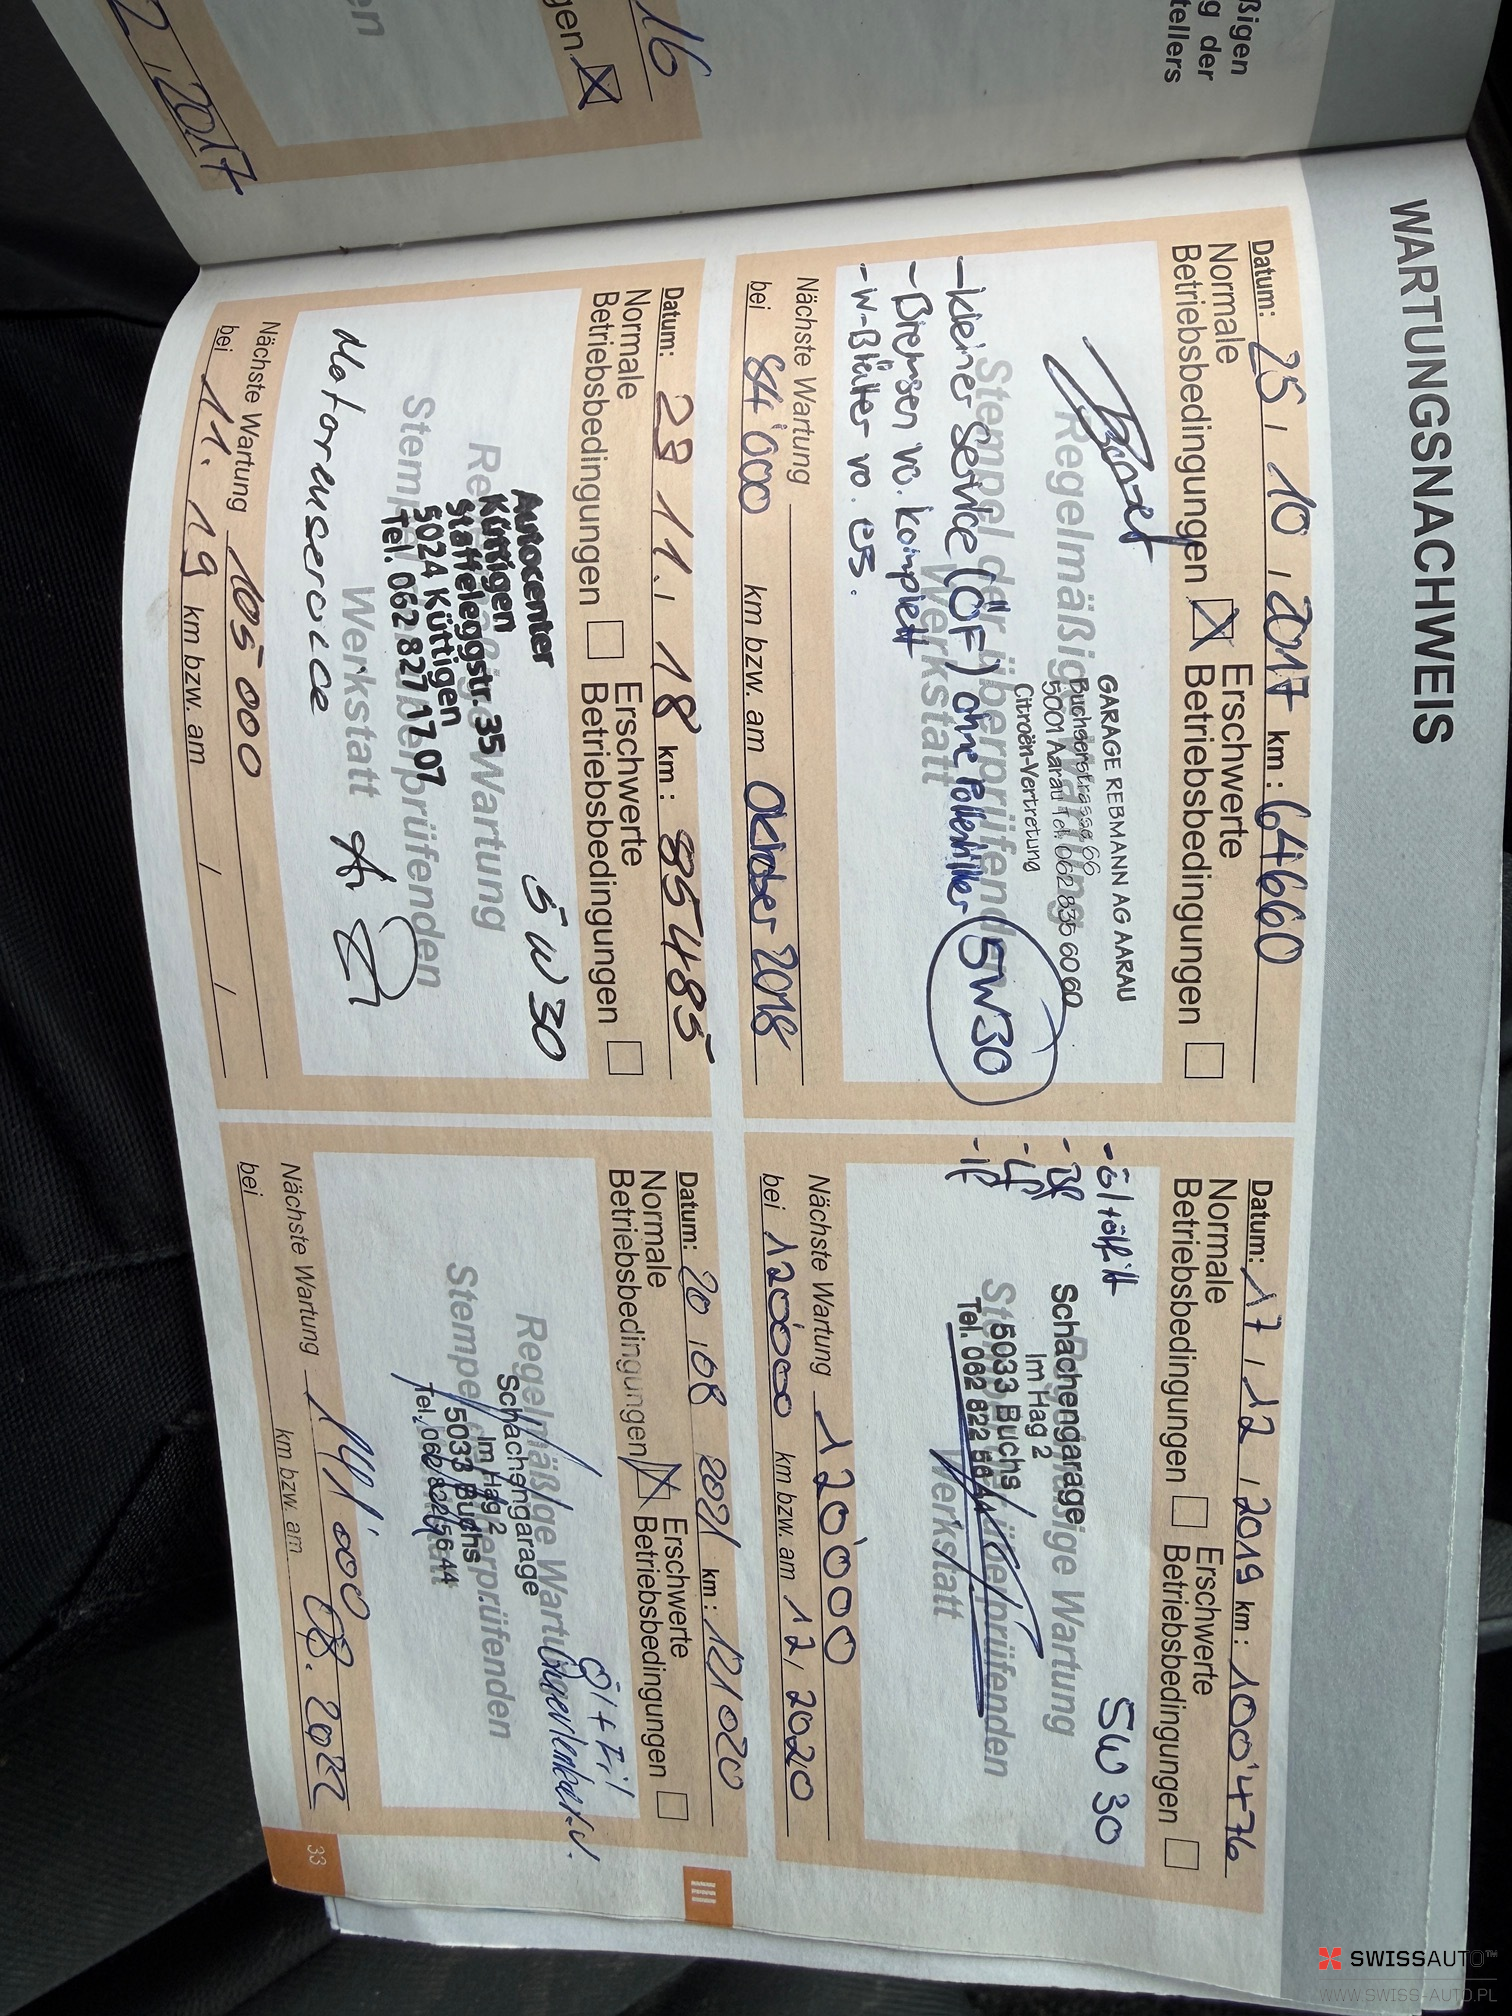 ßigen
g der
tellers
16
gen
2.2017
WARTUNGSNACHWEIS
Datum: 25.10.2017 km: 64660
Normale Betriebsbedingungen
Erschwerte Betriebsbedingungen
Regelmäßige Wartung
Stempel der überprüfenden
Werkstatt
GARAGE REBMANN AG AARAU
Buchserstrasse 66
5001 Aarau Tel. 062 835 60 60
Citroën-Vertretung
- kleiner Service (ÖF) ohne Pollenfilter 5W30
- Bremsen vo. komplett
- W-Blätter vo. ers.
Nächste Wartung
bei 84'000 km bzw. am Oktober 2018
Datum: 17.12.2019 km: 100'476
Normale Betriebsbedingungen
Erschwerte Betriebsbedingungen
5W30
- öl+ölfilt
Regelmäßige Wartung
Stempel der überprüfenden
Werkstatt
Schachengarage
Im Hag 2
5033 Buchs
Tel. 062 822 56 44
Nächste Wartung 120'000
bei 120'000 km bzw. am 12.2020
Datum: 28.11.18 km: 85485
Normale Betriebsbedingungen
Erschwerte Betriebsbedingungen
5W30
Regelmäßige Wartung
Stempel der überprüfenden
Werkstatt
Autocenter
Küttigen
Staffeleggstr. 35
5024 Küttigen
Tel. 062 827 17 07
Motorenservice
Nächste Wartung 105000
bei 11.19 km bzw. am / /
Datum: 20.08 2021 km: 121020
Normale Betriebsbedingungen
Erschwerte Betriebsbedingungen
Öl+Fil
Regelmäßige Wartung
Stempel der überprüfenden
Werkstatt
Schachengarage
Im Hag 2
5033 Buchs
Tel. 062 822 56 44
Nächste Wartung 141'000
bei km bzw. am 08.2022
III
33
SWISSAUTO™
WWW.SWISS-AUTO.PL